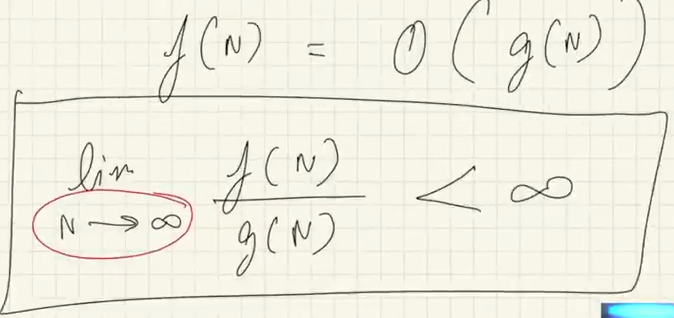 f(N) = O(g(N))
lim N→∞ f(N)/g(N) < ∞